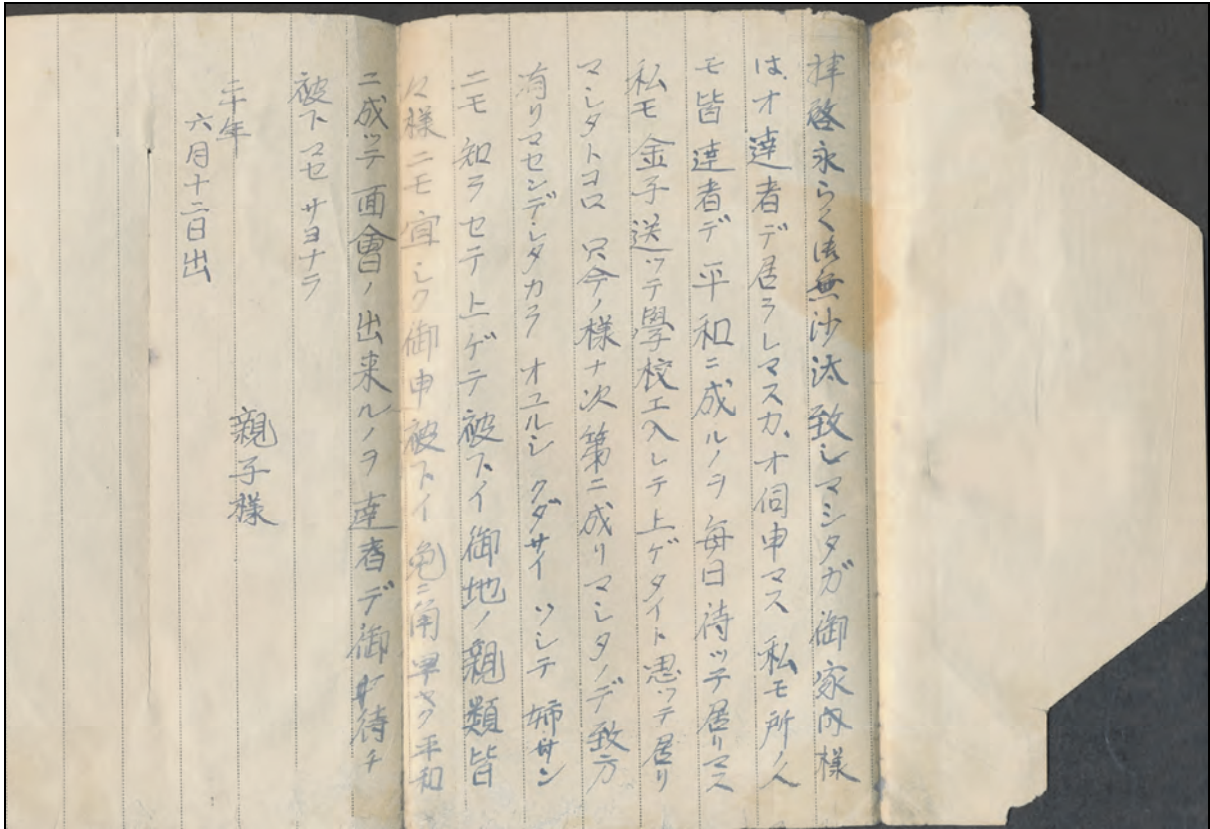 拝啓永らく御無沙汰致シマシタガ御家内様
は、オ達者デ居ラレマスカ、オ伺申マス 私モ所ノ人
モ皆達者デ平和ニ成ルノヲ毎日待ッテ居リマス
私モ金子送ッテ學校エ入レテ上ゲタイト思ッテ居リ
マシタトコロ 只今ノ様ナ次第ニ成リマシタノデ致方
有リマセンデシタカラ オユルシ クダサイ ソシテ 姉サン
ニモ 知ラセテ上ゲテ被下イ御地ノ親類皆
々様ニモ宜シク御申被下イ 兎ニ角早ヤク平和
ニ成ッテ面會ノ出来ルノヲ達者デ御待チ
被下マセ サヨナラ
二十年
六月十二日出
親子様